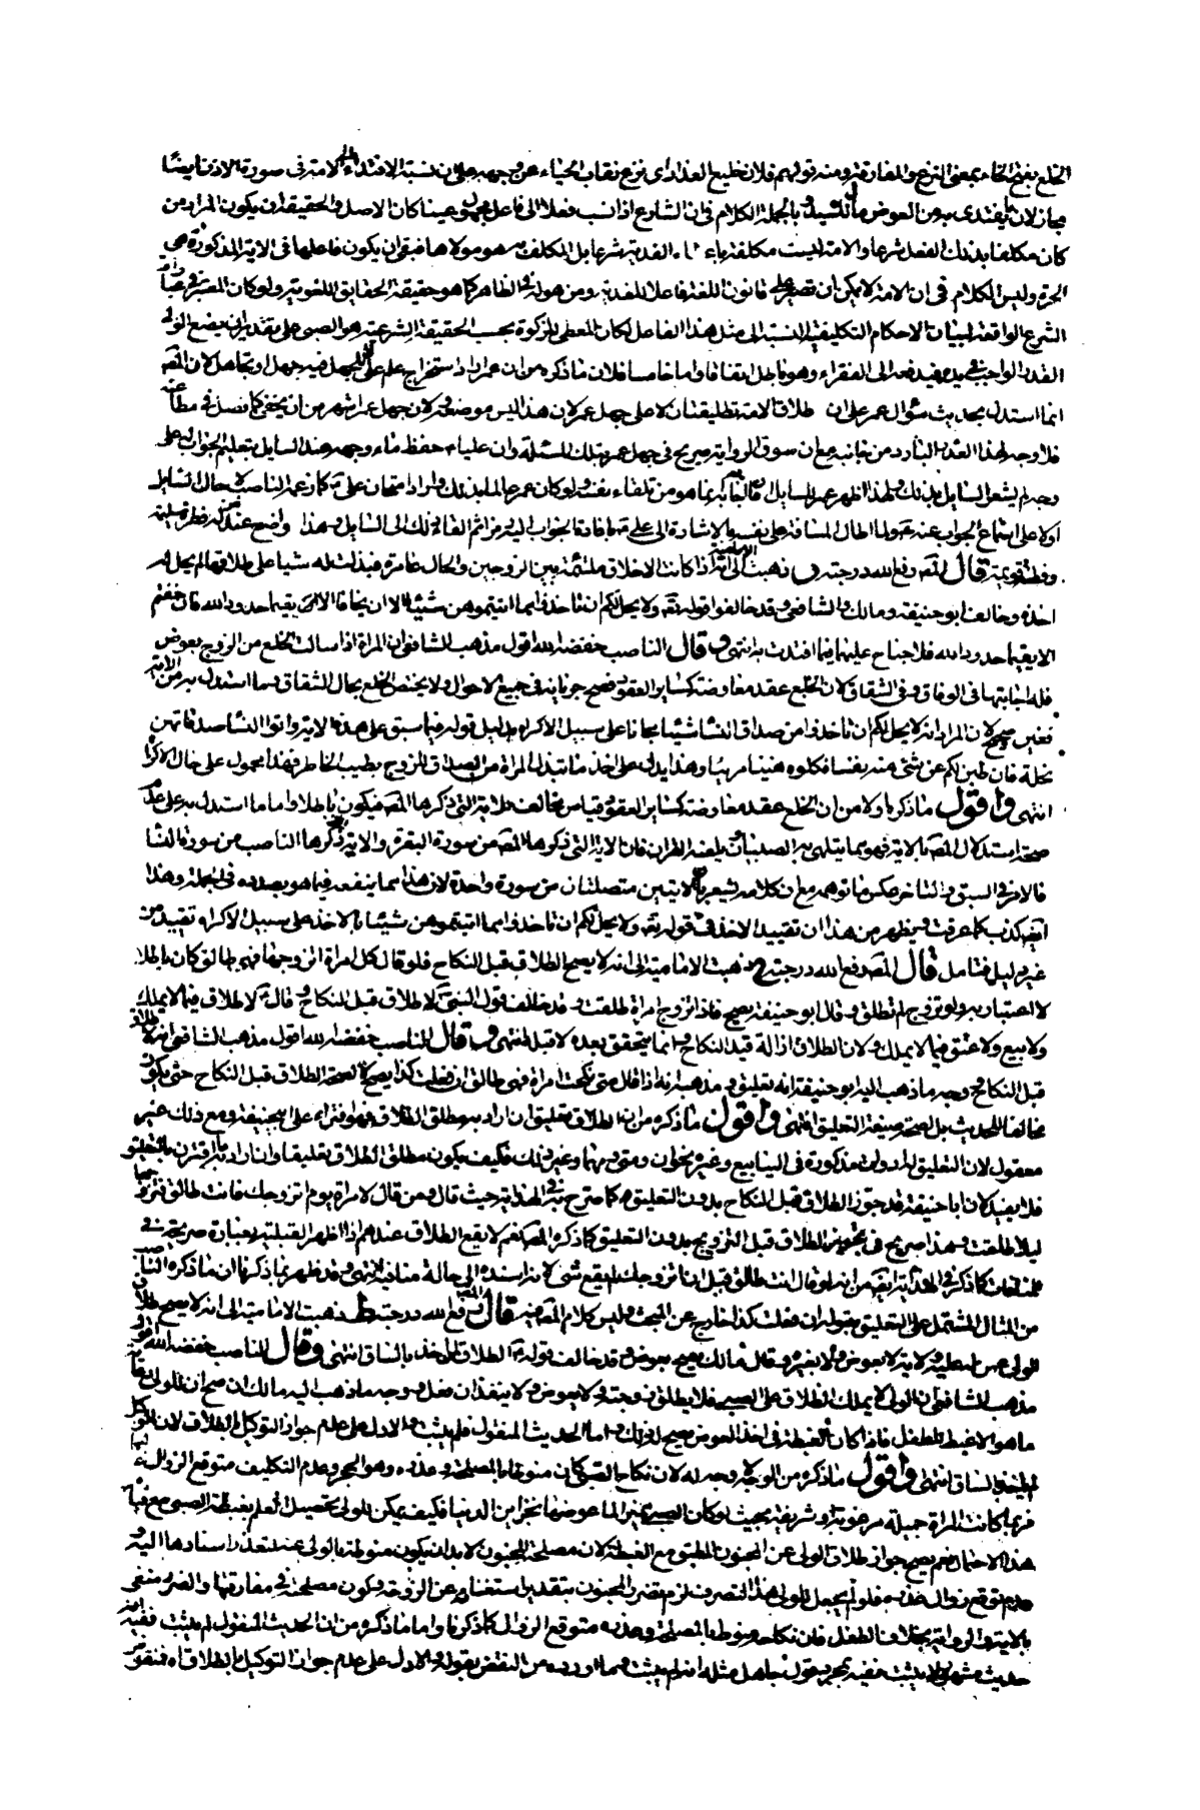 الخلع بفتح الخاء بمعنى النزع والمفارقة ومنه قولهم فلان خليع العذار اى نزع نقاب الحياء عن وجهه على ان نسبة الافتداء الى الامة فى صورة الاذن ايضا
مجاز لان ما يفتدى به من العوض مال لسيدها وبالجملة الكلام فى ان الشارع اذا نسب فعلا الى فاعل كان الاصل والحقيقة ان يكون المراد من
كان مكلفا بذلك الفعل شرعا والامة ليست مكلفة الفدية شرعا بل المكلف به هو مولاها فبقى ان يكون فاعلها فى الاية المذكورة هى
الحرة وليس الكلام فى ان الامة لا يمكن ان تصير على قانون اللغة فاعلا للفدية ومن هو له فى الظاهر كما هو حقيقة الحقايق اللغوية ولو كان المعتبر فى
الشرع الواقعة لبيان الاحكام التكليفية النسبة الى مثل هذا الفاعل لكان المعطى للزكوة بحسب الحقيقة الشرعية هو الصبى على تقدير ان يضع الولى
القدر الواجب فى يده فيدفعه الى الفقراء وهو باطل اتفاقا واما خامسا فلان ما ذكره من ان عمر اراد استخراج علم على فيه جهل او تجاهل لان المص
انما استدل بحديث سؤال عمر على ان طلاق الامة تطليقتان لا على جهل عمر لان هذا ليس موضعه ولان جهل عمر اشهر من ان يخفى كما فصل فى مطاعنه
فلا وجه لهذا العذر البارد من جانبه مع ان سوق الرواية صريح فى جهل عمر بتلك المسئلة وان عليا حفظ ماء وجهه عند السايل بتعليم الجواب له على
وجه لم يشعر السايل بذلك ولهذا اظهر عمر للسايل من تلقاء نفسه ولو كان عمر عالما بذلك واراد امتحان على كما زعمه الناصب لاحال السايل
اولا على استماع الجواب عنه ولما اطال المسافة على نفسه بالاشارة الى على ثم القاء ذلك الى السايل وهذا واضح عند من له فطرة سليمة
وفطنة قويمة قال المص رفع الله درجته ذهبت الامامية الى انه اذا كانت الاخلاق ملتئمة بين الزوجين والحال عامرة فبذلت له شيئا على طلاقها لم يحل له
اخذه وخالف ابو حنيفة ومالك والشافعى وقد خالفوا قوله تع ولا يحل لكم ان تاخذوا مما اتيتموهن شيئا الا ان يخافا الا يقيما حدود الله فان خفتم
الا يقيما حدود الله فلا جناح عليهما فيما افتدت به انتهى وقال الناصب خفضه الله اقول مذهب الشافعى ان المراة اذا سالت الخلع من الزوج بعوض
فله اجابتها فى الوفاق وفى الشقاق لان الخلع عقد معاوضة كساير العقود فصح جريانه فى جميع الاحوال ولا يختص الخلع بحال الشقاق وما استدل به من الاية
فغير صحيح لان المراد انه لا يحل لكم ان تاخذوا من صداق النسا شيئا مجانا على سبيل الاكراه بدليل قوله فيما سبق على هذه الاية واتوا النسا صدقاتهن
نحلة فان طبن لكم عن شئ منه نفسا فكلوه هنيئا مريئا وهذا يدل على اخذ ما تبذله المراة من الصداق للزوج بطيب الخاطر فهذا محمول على حال الاكراه
انتهى واقول ما ذكره اولا من ان الخلع عقد معاوضة كساير العقود قياس مخالف للاية التى ذكرها المص فيكون باطلا واما ما استدل به على عدم
صحة استدلال المص بالاية فهو مما يتلهى به الصبيان فان الاية التى ذكرها المص من سورة البقرة والاية التى ذكرها الناصب من سورة النسا
فالامر فى السبق والتاخر عكس ما توهمه مع ان كلامه يشعر بان الايتين متصلتان من سورة واحدة لان هذا مما ينفعه فيما هو بصدده فى الجملة وهذا
ايض كذب كما عرفت ويظهر من هذا ان تقييد الاخذ فى قوله تع ولا يحل لكم ان تاخذوا مما اتيتموهن شيئا بالاخذ على سبيل الاكراه تقييد من
غير دليل فتامل قال المص رفع الله درجته ذهبت الامامية الى انه لا يصح الطلاق قبل النكاح فلو قال كل امراة اتزوجها فهى طالق كان باطلا
لا اعتبار به ولو تزوج لم تطلق وقال ابو حنيفة يصح فاذا تزوج امراة طلقت وقد خالف قول النبى لا طلاق قبل النكاح وقال لا طلاق فيما لا يملك
ولا بيع ولا عتق فيما لا يملك ولان الطلاق ازالة قيد النكاح وانما يتحقق بعده لا قبله انتهى وقال الناصب خفضه الله اقول مذهب الشافعى انه لا طلاق
قبل النكاح ووجه ما ذهب اليه ابو حنيفة انه تعليق ومذهبه انه اذا قال متى نكحت امراة فهى طالق ان فعلت كذا يصح لا لصحة الطلاق قبل النكاح حتى يكون
مخالفا للحديث بل لصحة صيغة التعليق انتهى واقول ما ذكره من ان الطلاق تعليق ان اراد به مطلق الطلاق فهو افتراء على ابى حنيفة ومع ذلك غير
معقول لان التعليق له ادوات مذكورة فى الينابيع وغيره نحو ان ومتى وغير ذلك فكيف يكون مطلق الطلاق تعليقا وان اراد ما اقترن بالتعليق
فلا يفيد لان ابا حنيفة قد جوز الطلاق قبل النكاح بدون التعليق كما صرح به فى الهداية حيث قال ومن قال لامراة يوم اتزوجك فانت طالق فتزوجها
ليلا طلقت وهذا صريح فى تجويز الطلاق قبل التزويج بدون التعليق كما ذكره المص نعم لا يقع الطلاق عندهم اذا اظهر القبلية بعبارة صريحة
كما ذكر فى الهداية ايض من انه لو قال انت طالق قبل ان اتزوجك لم يقع شئ لانه اسنده الى حالة منافية انتهى وقد ظهر بما ذكرنا ان ما ذكره الناصب
من المثال المشتمل على التعليق بقوله ان فعلت كذا خارج عن المبحث وليس كلام المص فيه قال المص رفع الله درجته ذهبت الامامية الى انه لا يصح طلاق
الولى عمن له عليه ولاية لا بعوض ولا بغيره وقال مالك يصح بعوض وقد خالف قوله الطلاق لمن اخذ بالساق انتهى وقال الناصب خفضه الله اقول
مذهب الشافعى ان الولى لا يملك الطلاق على الصبى فلا يطلق زوجته لا بعوض ولا ينفذ ان فعل ووجه ما ذهب اليه مالك ان صح ان للولى رعاية
ما هو الاغبط للطفل فاذا كان الغبطة فى اخذ العوض يصح له ذلك واما الحديث المنقول فلم يثبت والا لدل على عدم جواز التوكيل بالطلاق لان الوكيل
لم ياخذ بالساق انتهى واقول ما ذكره من الوجه لا وجه له لان نكاح الصبى كان منوطا بالمصلحة وعذره وهو الحجر وعدم التكليف متوقع الزوال
فربما كانت المراة جميلة مرغوبة او شريفة بحيث لو كان الصبى مميزا لما عوضها بخزاين الدنيا فكيف يمكن للولى تحصيل العلم بغبطة الصبى مع قيام
هذا الاحتمال نعم يصح جواز طلاق الولى عن المجنون المطبق مع الغبطة لان مصلحة المجنون لابد ان يكون منوطة بالولى عند تعذر اسنادها اليه و
عدم توقع زوال عذره فلو لم يجعل للولى هذا التصرف لزم تضرر المجنون بتقدير استغنائه عن الزوجة وكون مصلحته فى مفارقتها والضرر منفى
بالاية والرواية بخلاف الطفل فان نكاحه منوط بالمصلحة وعذره متوقع الزوال كما ذكرنا واما ما ذكره من ان الحديث المنقول لم يثبت ففيه انه
حديث مشهور لا يثبت نفيه بمجرد قول جاهل مثله انه لم يثبت واما ما اورده من النقض بقوله والا لدل على عدم جواز التوكيل بالطلاق اه فنقول